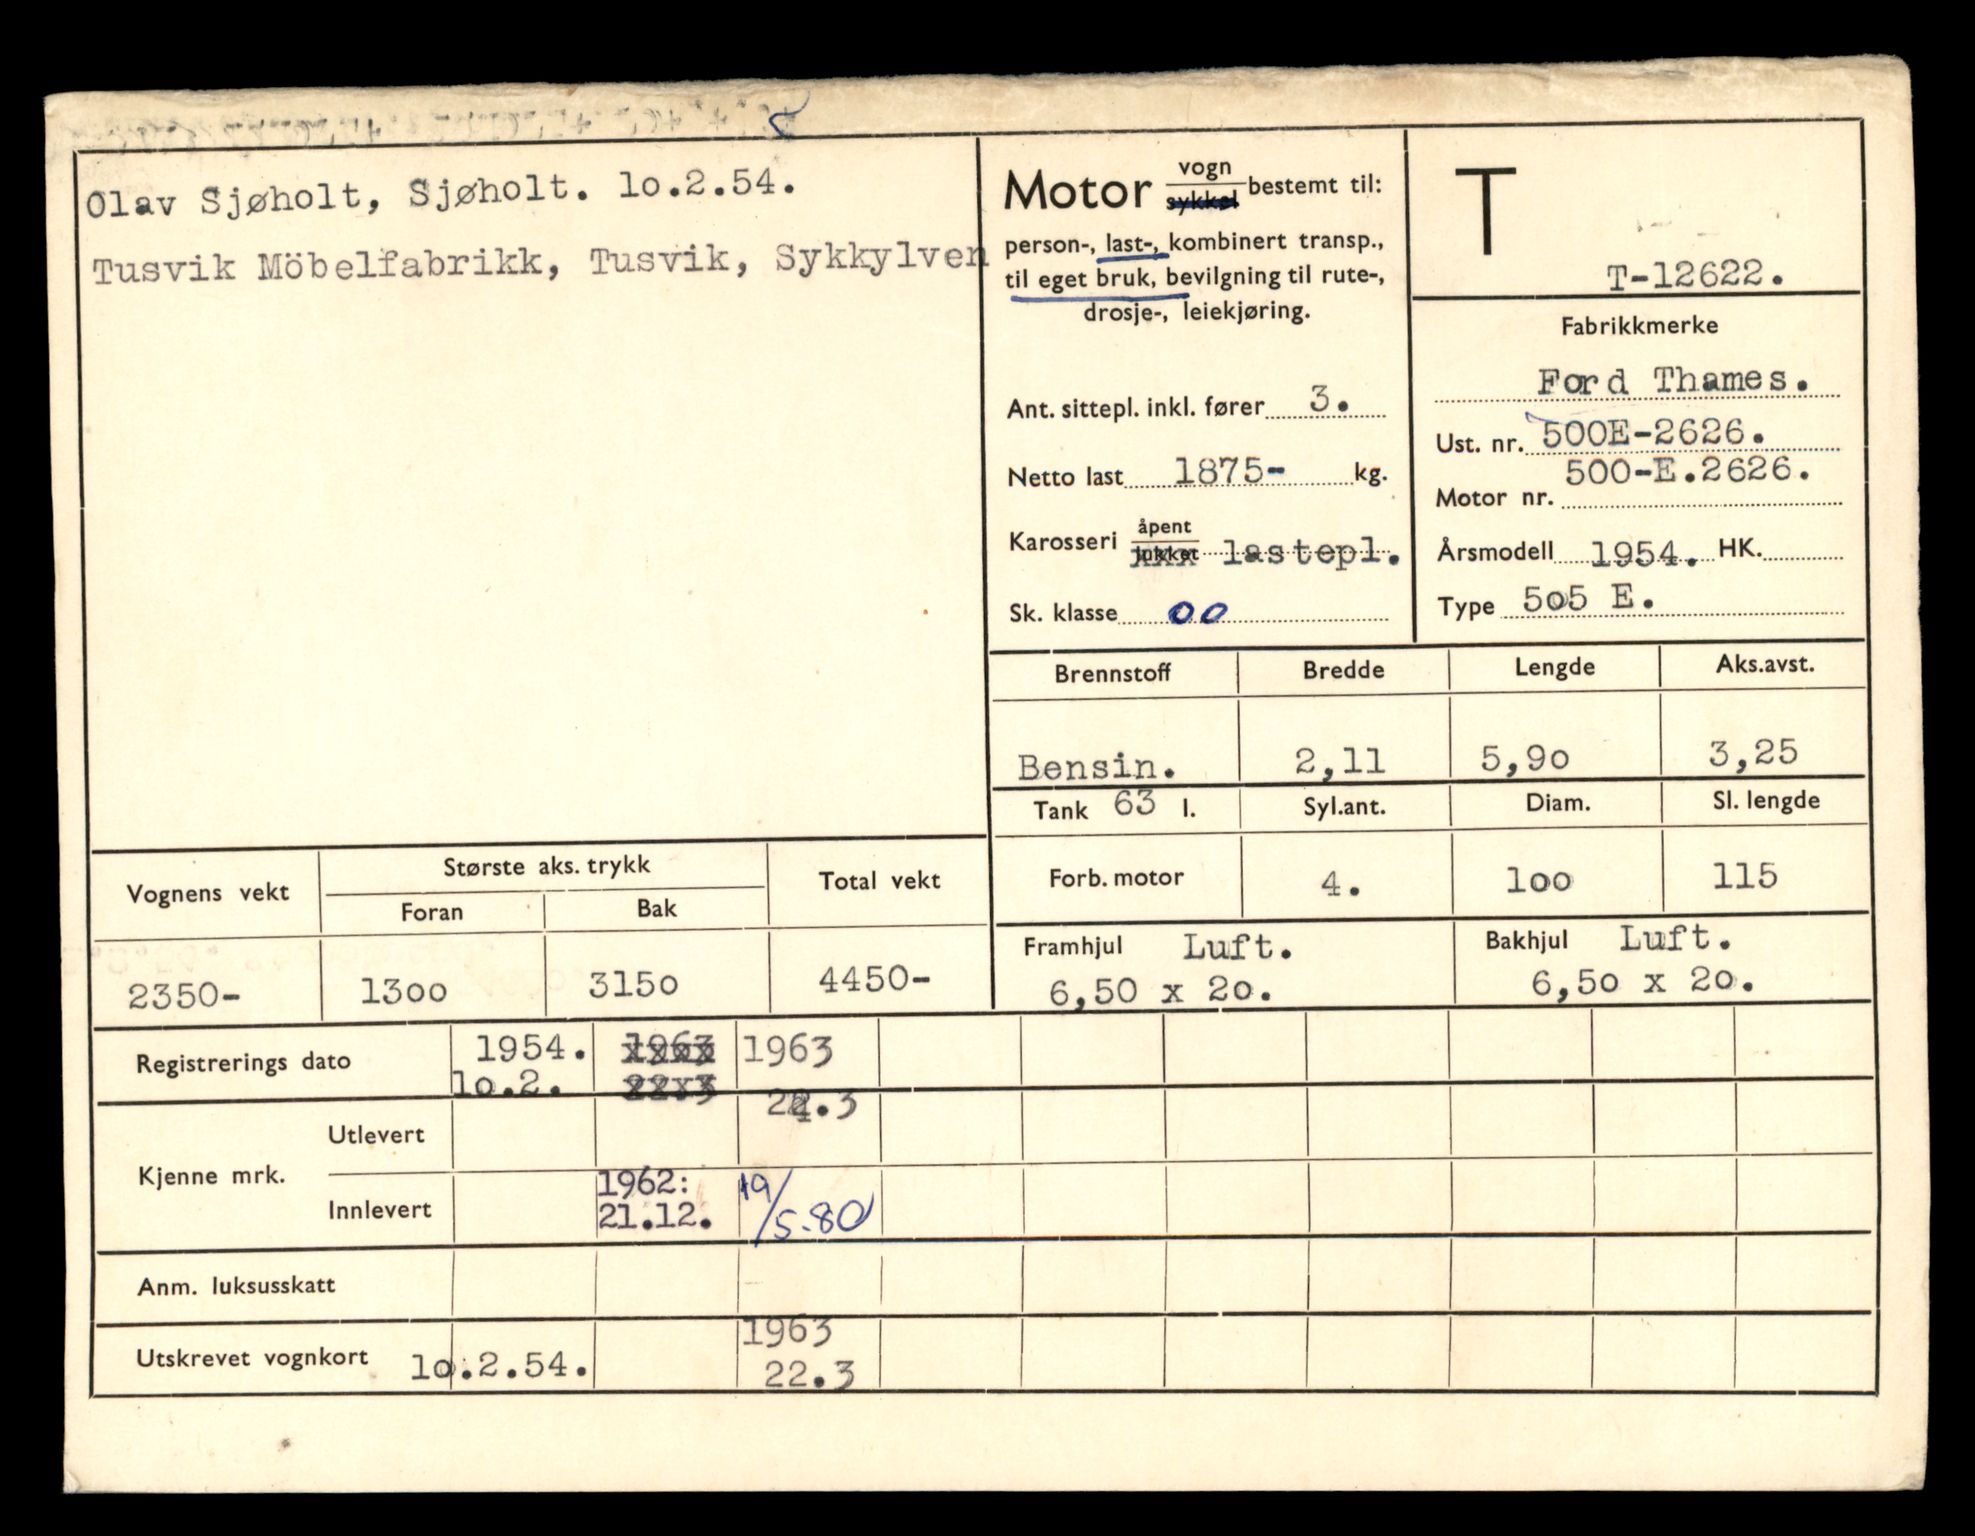 Olav Sjøholt, Sjøholt. 1o.2.54.
Tusvik Möbelfabrikk, Tusvik, Sykkylven
Motor vogn sykkel bestemt til:
person-, last-, kombinert transp.,
til eget bruk, bevilgning til rute-,
drosje-, leiekjøring.
Ant. sittepl. inkl. fører 3.
Netto last 1875- kg.
Karosseri åpent lukket lastepl.
Sk. klasse 00
T
T-12622.
Fabrikkmerke
Ford Thames.
Ust. nr. 500E-2626.
500-E.2626.
Motor nr.
Årsmodell 1954. HK.
Type 5o5 E.
Brennstoff Bredde Lengde Aks.avst.
Bensin. 2,11 5,9o 3,25
Tank 63 l. Syl.ant. Diam. Sl. lengde
Forb. motor 4. 1oo 115
Framhjul Luft. Bakhjul Luft.
6,50 x 2o. 6,5o x 2o.
Vognens vekt Største aks. trykk Total vekt
Foran Bak
2350- 13oo 315o 4450-
Registrerings dato 1954. 1963 1963
1o.2. 22.3
Utlevert
Kjenne mrk.
Innlevert 1962: 19/5-80
21.12.
Anm. luksusskatt
1963
Utskrevet vognkort 1o.2.54. 22.3